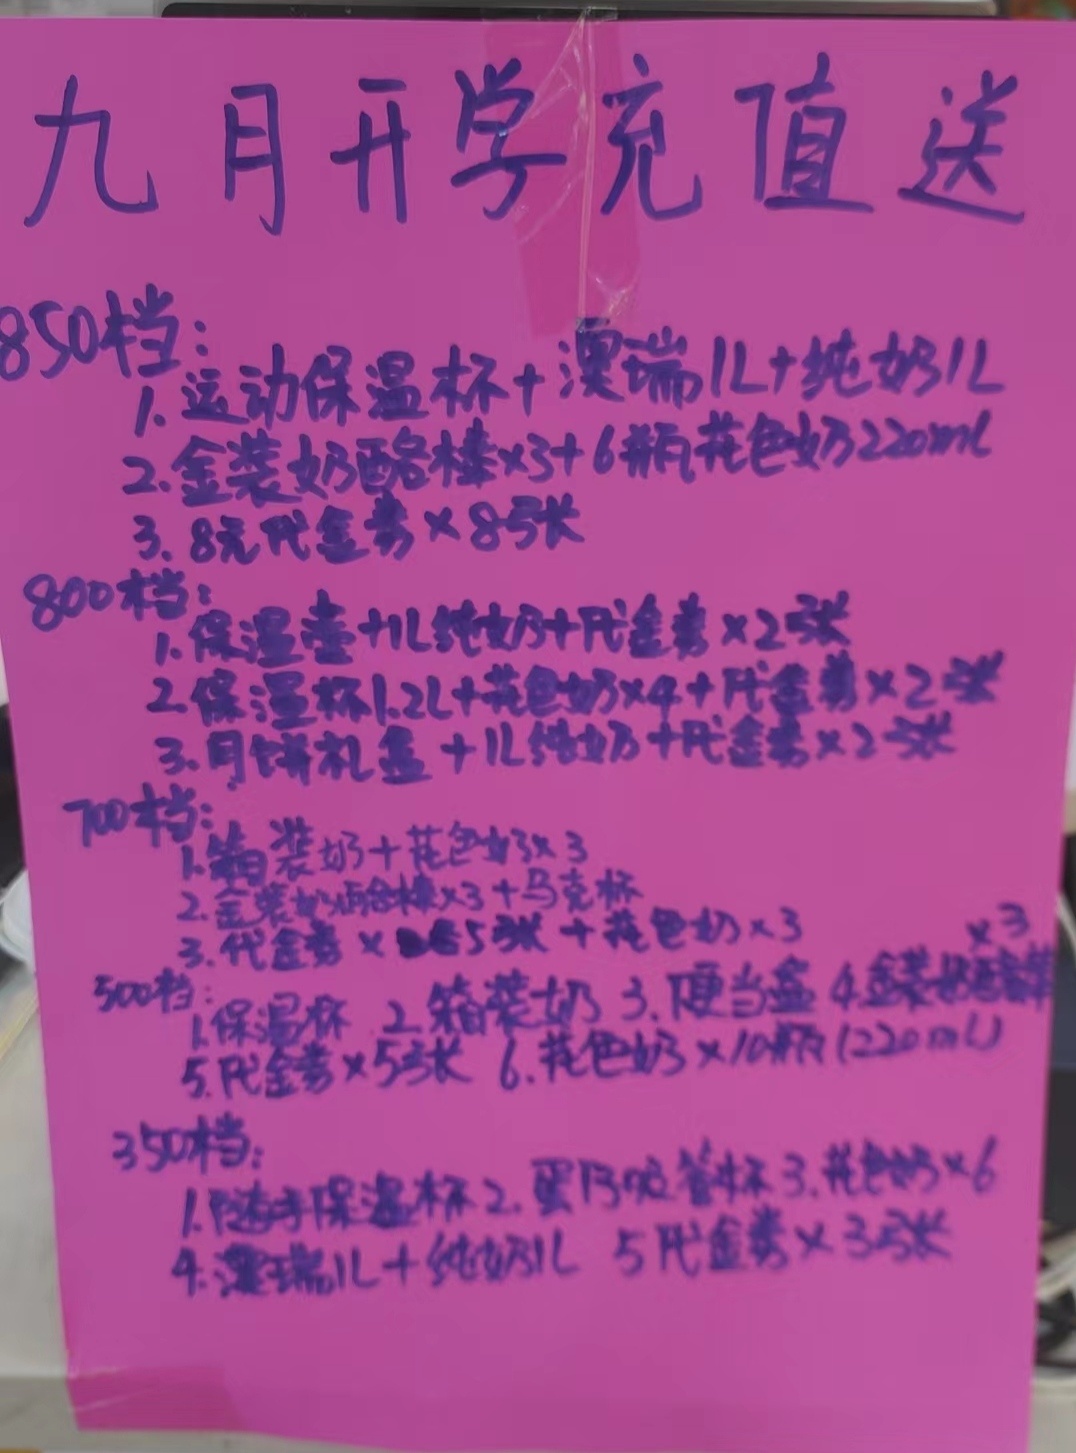 九月开学充值送
850档:
1. 运动保温杯+澳瑞1L+纯奶1L
2. 金装奶酪棒×3+6瓶花色奶220ml
3. 8元代金券×8张
800档:
1. 保温壶+1L纯奶+代金券×2张
2. 保温杯1.2L+花色奶×4+代金券×2张
3. 月饼礼盒+1L纯奶+代金券×2张
700档:
1. 箱装奶+花色奶×3
2. 金装奶酪棒×3+马克杯
3. 代金券×5张+花色奶×3
×3
500档:
1. 保温杯 2. 箱装奶 3. 便当盒 4. 金装奶酪棒
5. 代金券×5张 6. 花色奶×10瓶(220ml)
350档:
1. 随手保温杯 2. 吸管杯 3. 花色奶×6
4. 澳瑞1L+纯奶1L 5 代金券×3张